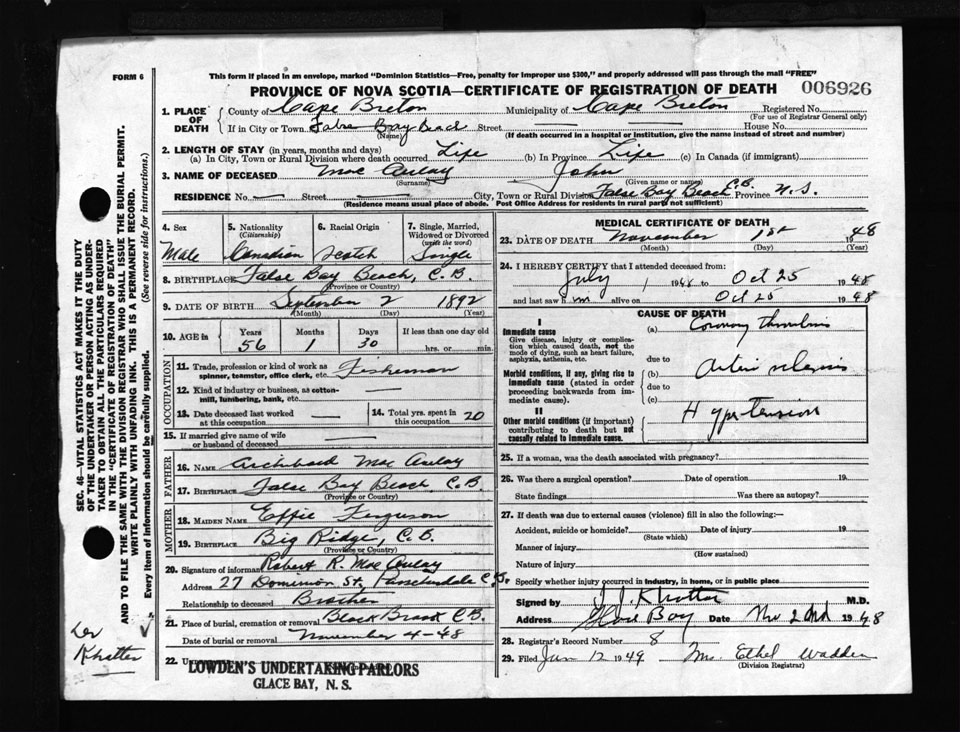 FORM 6
This form if placed in an envelope, marked "Dominion Statistics—Free, penalty for improper use $300," and properly addressed will pass through the mail "FREE"
PROVINCE OF NOVA SCOTIA—CERTIFICATE OF REGISTRATION OF DEATH 006926
1. PLACE OF DEATH County of Cape Breton Municipality of Cape Breton Registered No.
(For use of Registrar General only)
If in City or Town False Bay Beach Street — House No. —
(Name) (If death occurred in a hospital or institution, give the name instead of street and number)
2. LENGTH OF STAY (in years, months and days)
(a) In City, Town or Rural Division where death occurred Life (b) In Province Life (c) In Canada (if immigrant)
3. NAME OF DECEASED Mac Aulay John
(Surname) (Given name or names)
RESIDENCE No. — Street — City, Town or Rural Division False Bay Beach C.B. Province N.S.
(Residence means usual place of abode. Post Office Address for residents in rural parts not sufficient)
4. Sex Male
5. Nationality (Citizenship) Canadian
6. Racial Origin Scotch
7. Single, Married, Widowed or Divorced (write the word) Single
8. BIRTHPLACE False Bay Beach, C.B.
(Province or Country)
9. DATE OF BIRTH September 2 1892
(Month) (Day) (Year)
10. AGE in Years 56 Months 1 Days 30 If less than one day old
hrs. or min.
OCCUPATION
11. Trade, profession or kind of work as spinner, teamster, office clerk, etc. Fisherman
12. Kind of industry or business, as cotton-mill, lumbering, bank, etc. —
13. Date deceased last worked at this occupation —
14. Total yrs. spent in this occupation 20
15. If married give name of wife or husband of deceased —
FATHER
16. NAME Archibald Mac Aulay
17. BIRTHPLACE False Bay Beach, C.B.
(Province or Country)
MOTHER
18. MAIDEN NAME Effie Ferguson
19. BIRTHPLACE Big Ridge, C.B.
(Province or Country)
20. Signature of informant Robert R. Mac Aulay
Address 27 Dominion St, C.B.
Relationship to deceased Brother
21. Place of burial, cremation or removal Black Brook C.B.
Date of burial or removal November 4-48
22.
LOWDEN'S UNDERTAKING PARLORS
GLACE BAY, N. S.
MEDICAL CERTIFICATE OF DEATH
23. DATE OF DEATH November 1st 1948
(Month) (Day) (Year)
24. I HEREBY CERTIFY that I attended deceased from:
July 1 1948 to Oct 25 1948
and last saw h im alive on Oct 25 1948
CAUSE OF DEATH
I
Immediate cause
Give disease, injury or complication which caused death, not the mode of dying, such as heart failure, asphyxia, asthenia, etc.
(a) Coronary Thrombosis
due to
Morbid conditions, if any, giving rise to immediate cause (stated in order proceeding backwards from immediate cause).
(b) Arterio sclerosis
due to
(c)
II
Other morbid conditions (if important) contributing to death but not causally related to immediate cause.
Hypertension
25. If a woman, was the death associated with pregnancy?
26. Was there a surgical operation? Date of operation 19
State findings Was there an autopsy?
27. If death was due to external causes (violence) fill in also the following:—
Accident, suicide or homicide? Date of injury 19
(State which)
Manner of injury
(How sustained)
Nature of injury
Specify whether injury occurred in industry, in home, or in public place
Signed by Khattar M.D.
Address Glace Bay Date Nov 2nd 1948
28. Registrar's Record Number 8
29. Filed Jan 12 1949 Mrs. Ethel Wadden
(Division Registrar)
SEC. 46—VITAL STATISTICS ACT MAKES IT THE DUTY
OF THE UNDERTAKER OR PERSON ACTING AS UNDER-
TAKER TO OBTAIN ALL THE PARTICULARS REQUIRED
IN THE "CERTIFICATE OF REGISTRATION OF DEATH"
AND TO FILE THE SAME WITH THE DIVISION REGISTRAR WHO SHALL ISSUE THE BURIAL PERMIT.
WRITE PLAINLY WITH UNFADING INK. THIS IS A PERMANENT RECORD.
Every item of information should be carefully supplied. (See reverse side for instructions.)
Khattar